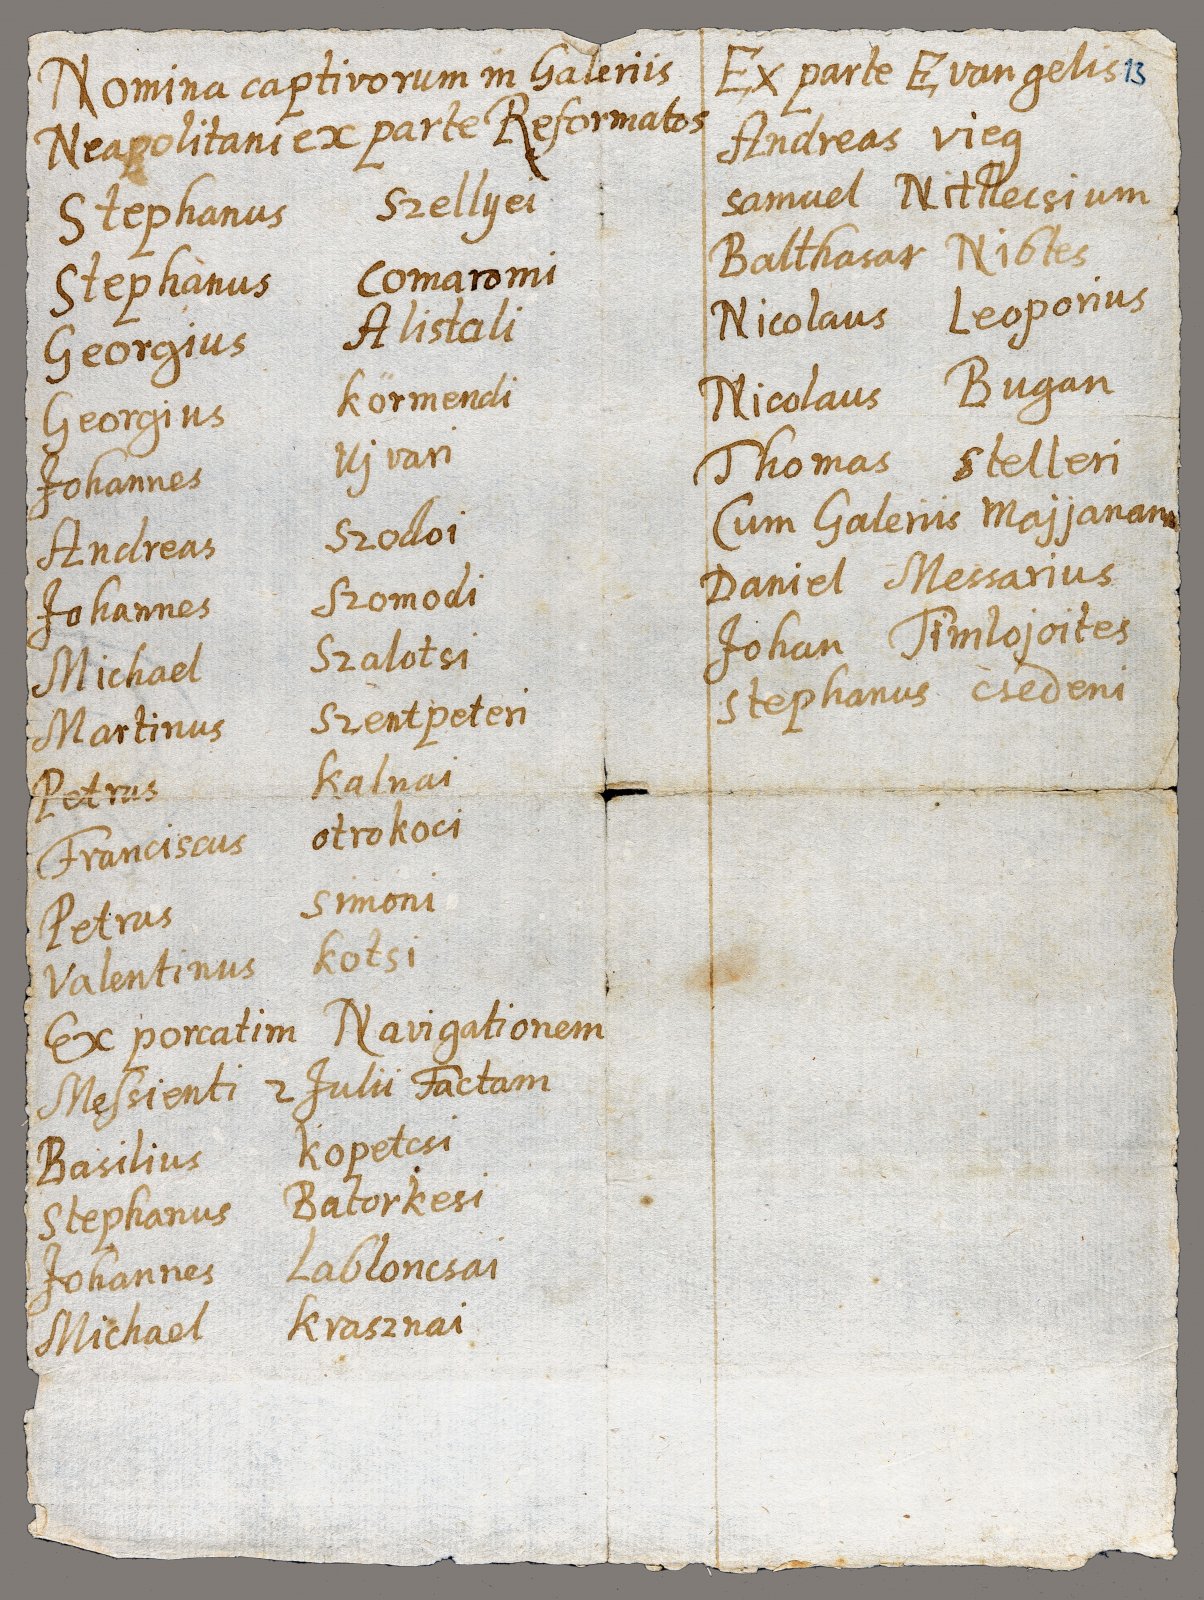 Nomina captivorum in Galeriis
Neapolitani ex parte Reformatos
Stephanus Szellyei
Stephanus Comaromi
Georgius Alistali
Georgius körmendi
Johannes Ujvari
Andreas Szodoi
Johannes Szomodi
Michael Szalotsi
Martinus Szentpeteri
Petrus kalnai
Franciscus otrokoci
Petrus simoni
Valentinus kotsi
Ex porcatim Navigationem
Messienti 2 Julii Factam
Basilius kopetsi
Stephanus Batorkesi
Johannes Labloncsai
Michael krasznai
Ex parte Evangelis 13
Andreas vieg
samuel Nithecsium
Balthasar Nibtes
Nicolaus Leoporius
Nicolaus Bugan
Thomas stelleri
Cum Galeriis Majjanam
Daniel Messarius
Johan Timlojoites
stephanus csedeni